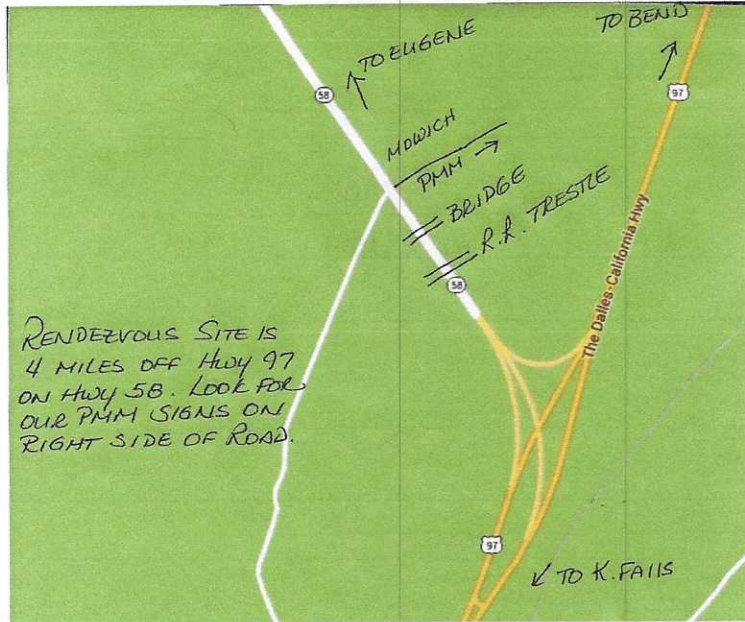 TO BEND
TO EUGENE
58
97
MOWICH
PMM
BRIDGE
R.R. TRESTLE
58
The Dalles-California Hwy
RENDEZVOUS SITE IS
4 MILES OFF HWY 97
ON HWY 58. LOOK FOR
OUR PMM SIGNS ON
RIGHT SIDE OF ROAD.
97
TO K. FALLS